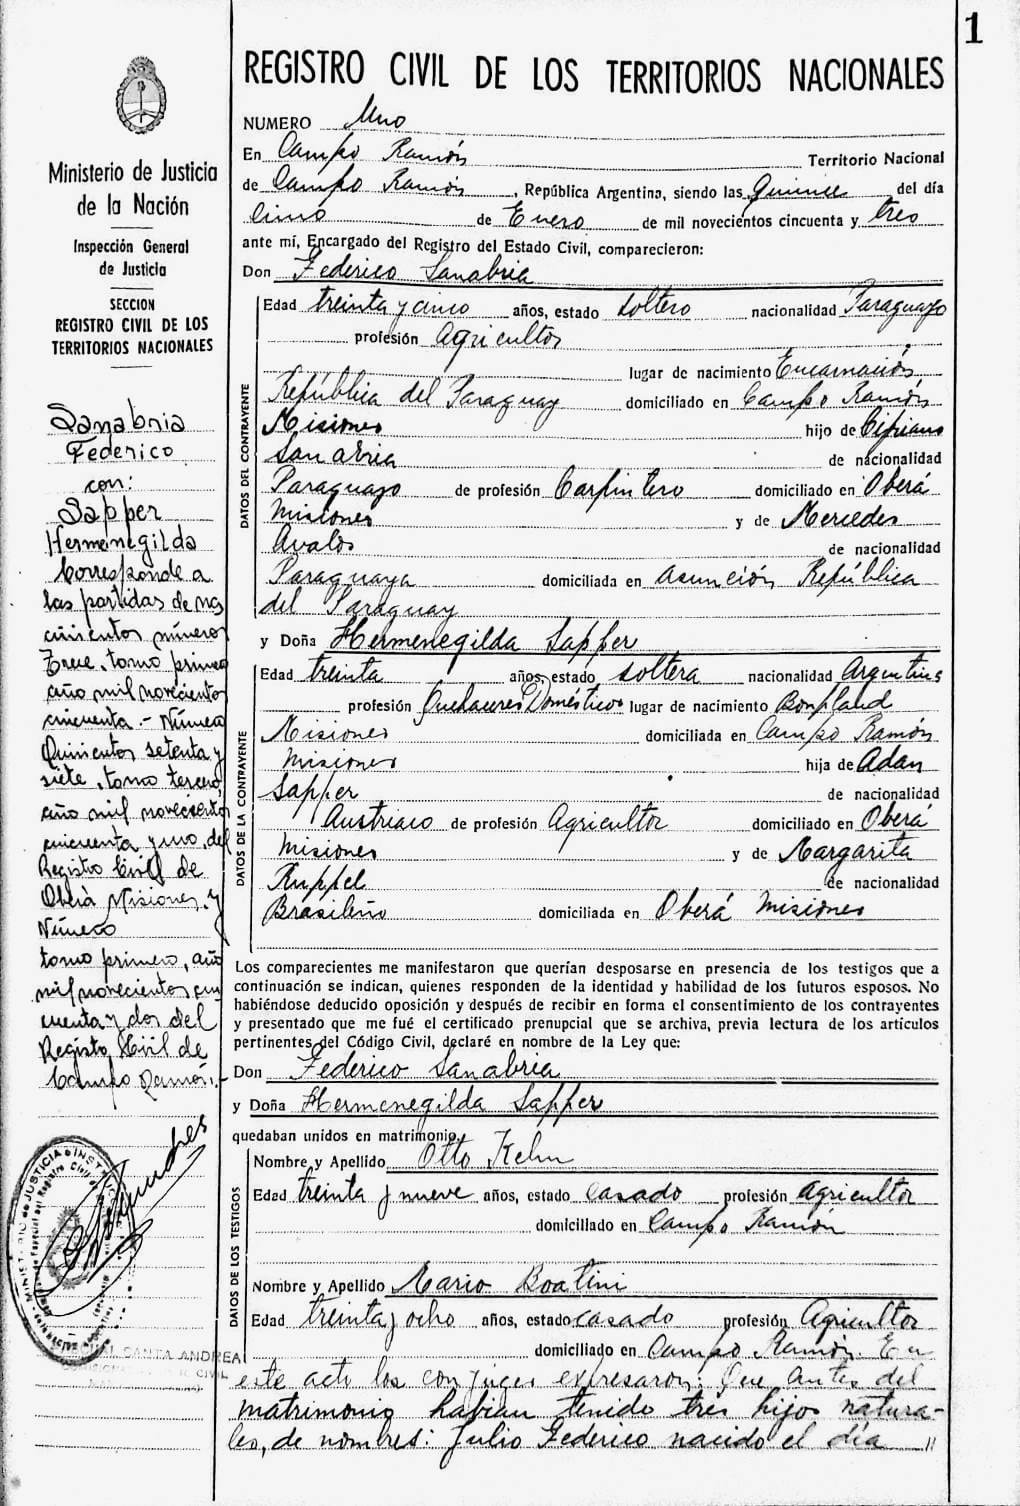 1
REGISTRO CIVIL DE LOS TERRITORIOS NACIONALES
NUMERO Uno
En Campo Ramón Territorio Nacional
de Campo Ramón, República Argentina, siendo las Quince del día
Cinco de Enero de mil novecientos cincuenta y tres
ante mí, Encargado del Registro del Estado Civil, comparecieron:
Don Federico Sanabria
DATOS DEL CONTRAYENTE
Edad treinta y cinco años, estado soltero nacionalidad Paraguayo
profesión Agricultor
lugar de nacimiento Encarnación
República del Paraguay domiciliado en Campo Ramón
Misiones hijo de Cipriano
Sanabria de nacionalidad
Paraguayo de profesión Carpintero domiciliado en Oberá
Misiones y de Mercedes
Avalos de nacionalidad
Paraguaya domiciliada en Asunción República
del Paraguay
y Doña Hermenegilda Sapper
DATOS DE LA CONTRAYENTE
Edad treinta años, estado soltera nacionalidad Argentina
profesión Quehaceres Domésticos lugar de nacimiento Bonpland
Misiones domiciliada en Campo Ramón
Misiones hija de Adan
Sapper de nacionalidad
Austriaco de profesión Agricultor domiciliado en Oberá
Misiones y de Margarita
Ruppel de nacionalidad
Brasileña domiciliada en Oberá Misiones
Los comparecientes me manifestaron que querían desposarse en presencia de los testigos que a
continuación se indican, quienes responden de la identidad y habilidad de los futuros esposos. No
habiéndose deducido oposición y después de recibir en forma el consentimiento de los contrayentes
y presentado que me fué el certificado prenupcial que se archiva, previa lectura de los artículos
pertinentes del Código Civil, declaré en nombre de la Ley que:
Don Federico Sanabria
y Doña Hermenegilda Sapper
quedaban unidos en matrimonio.
DATOS DE LOS TESTIGOS
Nombre y Apellido Otto Kehn
Edad treinta y nueve años, estado casado profesión agricultor
domiciliado en Campo Ramón
Nombre y Apellido Mario Boatini
Edad treinta y ocho años, estado casado profesión Agricultor
domiciliado en Campo Ramón. En
este acto los conjuges expresaron: Que antes del
matrimonio habían tenido tres hijos natura-
les, de nombres: Julio Federico nacido el día //
Ministerio de Justicia
de la Nación
Inspección General
de Justicia
SECCION
REGISTRO CIVIL DE LOS
TERRITORIOS NACIONALES
Sanabria
Federico
con:
Sapper
Hermenegilda
Corresponde a
las partidas de na
cimientos número
Trece, tomo primero
año mil novecientos
cincuenta.- Número
Quinientos setenta y
siete, tomo tercero,
año mil novecientos
cincuenta y uno, del
Registro Civil de
Oberá Misiones. y
Número
tomo primero, año
mil novecientos cin
cuenta y dos del
Registro Civil de
Campo Ramón.-
MINISTERIO de JUSTICIA
SANTA ANDREA